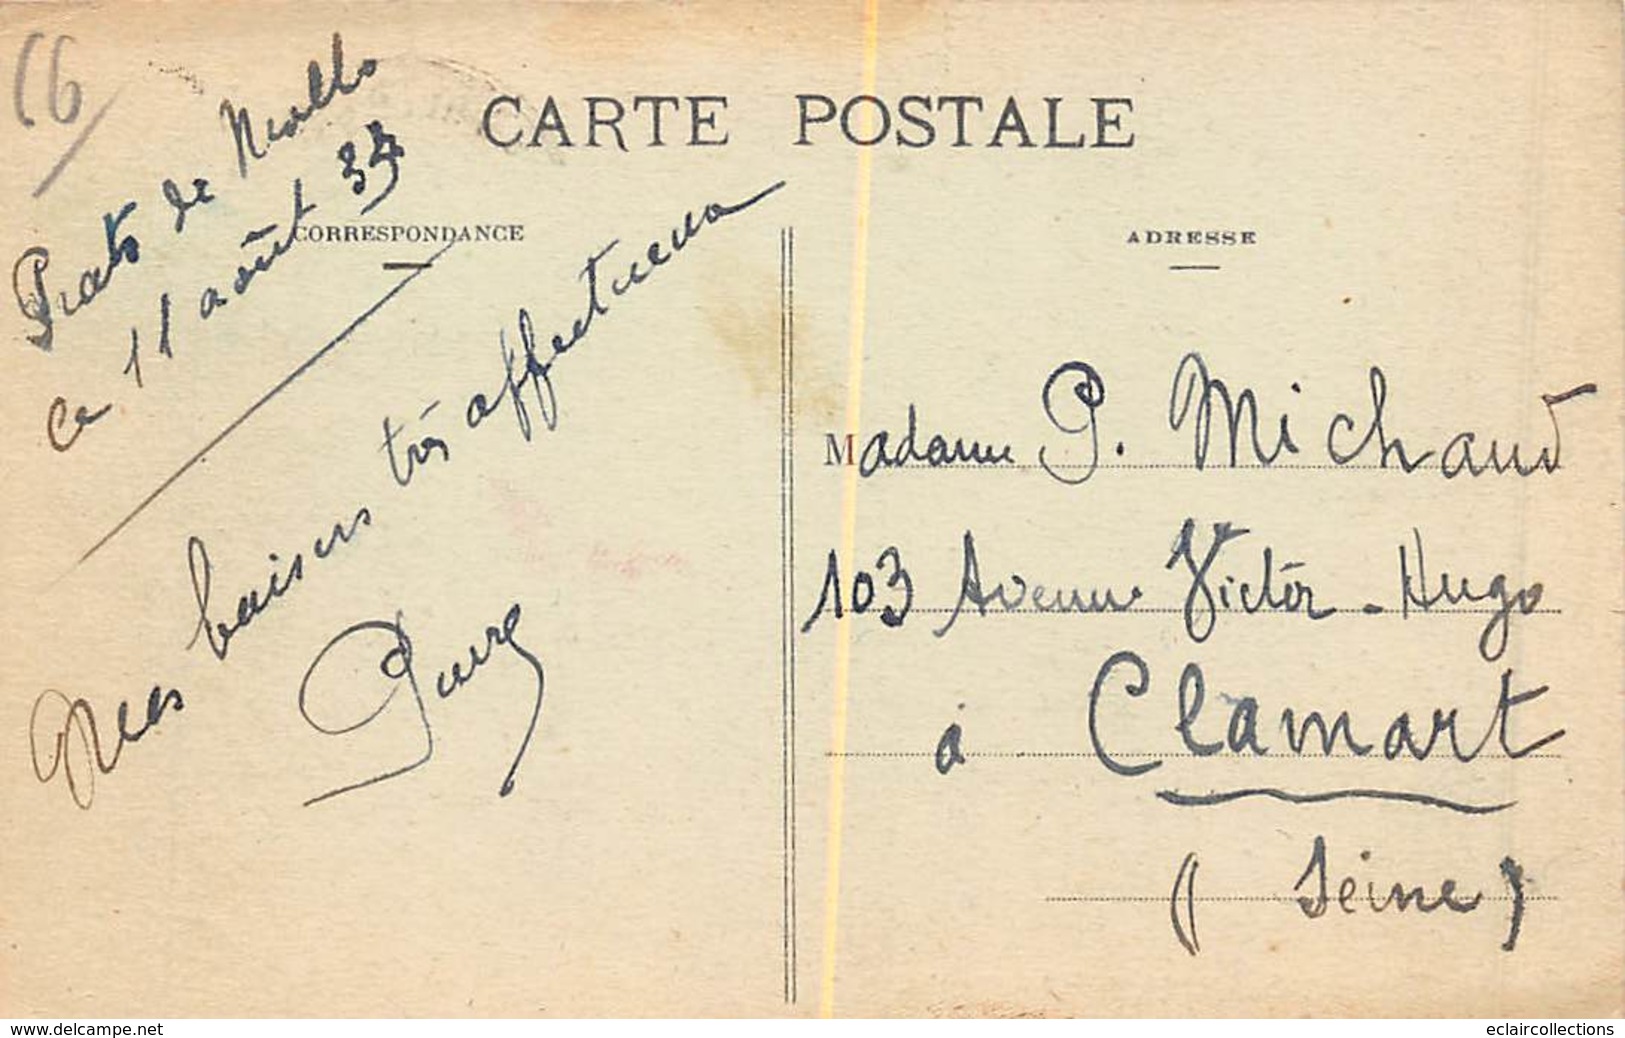 66
CARTE POSTALE
CORRESPONDANCE
Prats de Mollo
ce 11 août 34
Mes baisers très affectueux
Pierre
ADRESSE
Madame P. Michaud
103 Avenue Victor-Hugo
à Clamart
(Seine)
www.delcampe.net
eclaircollections